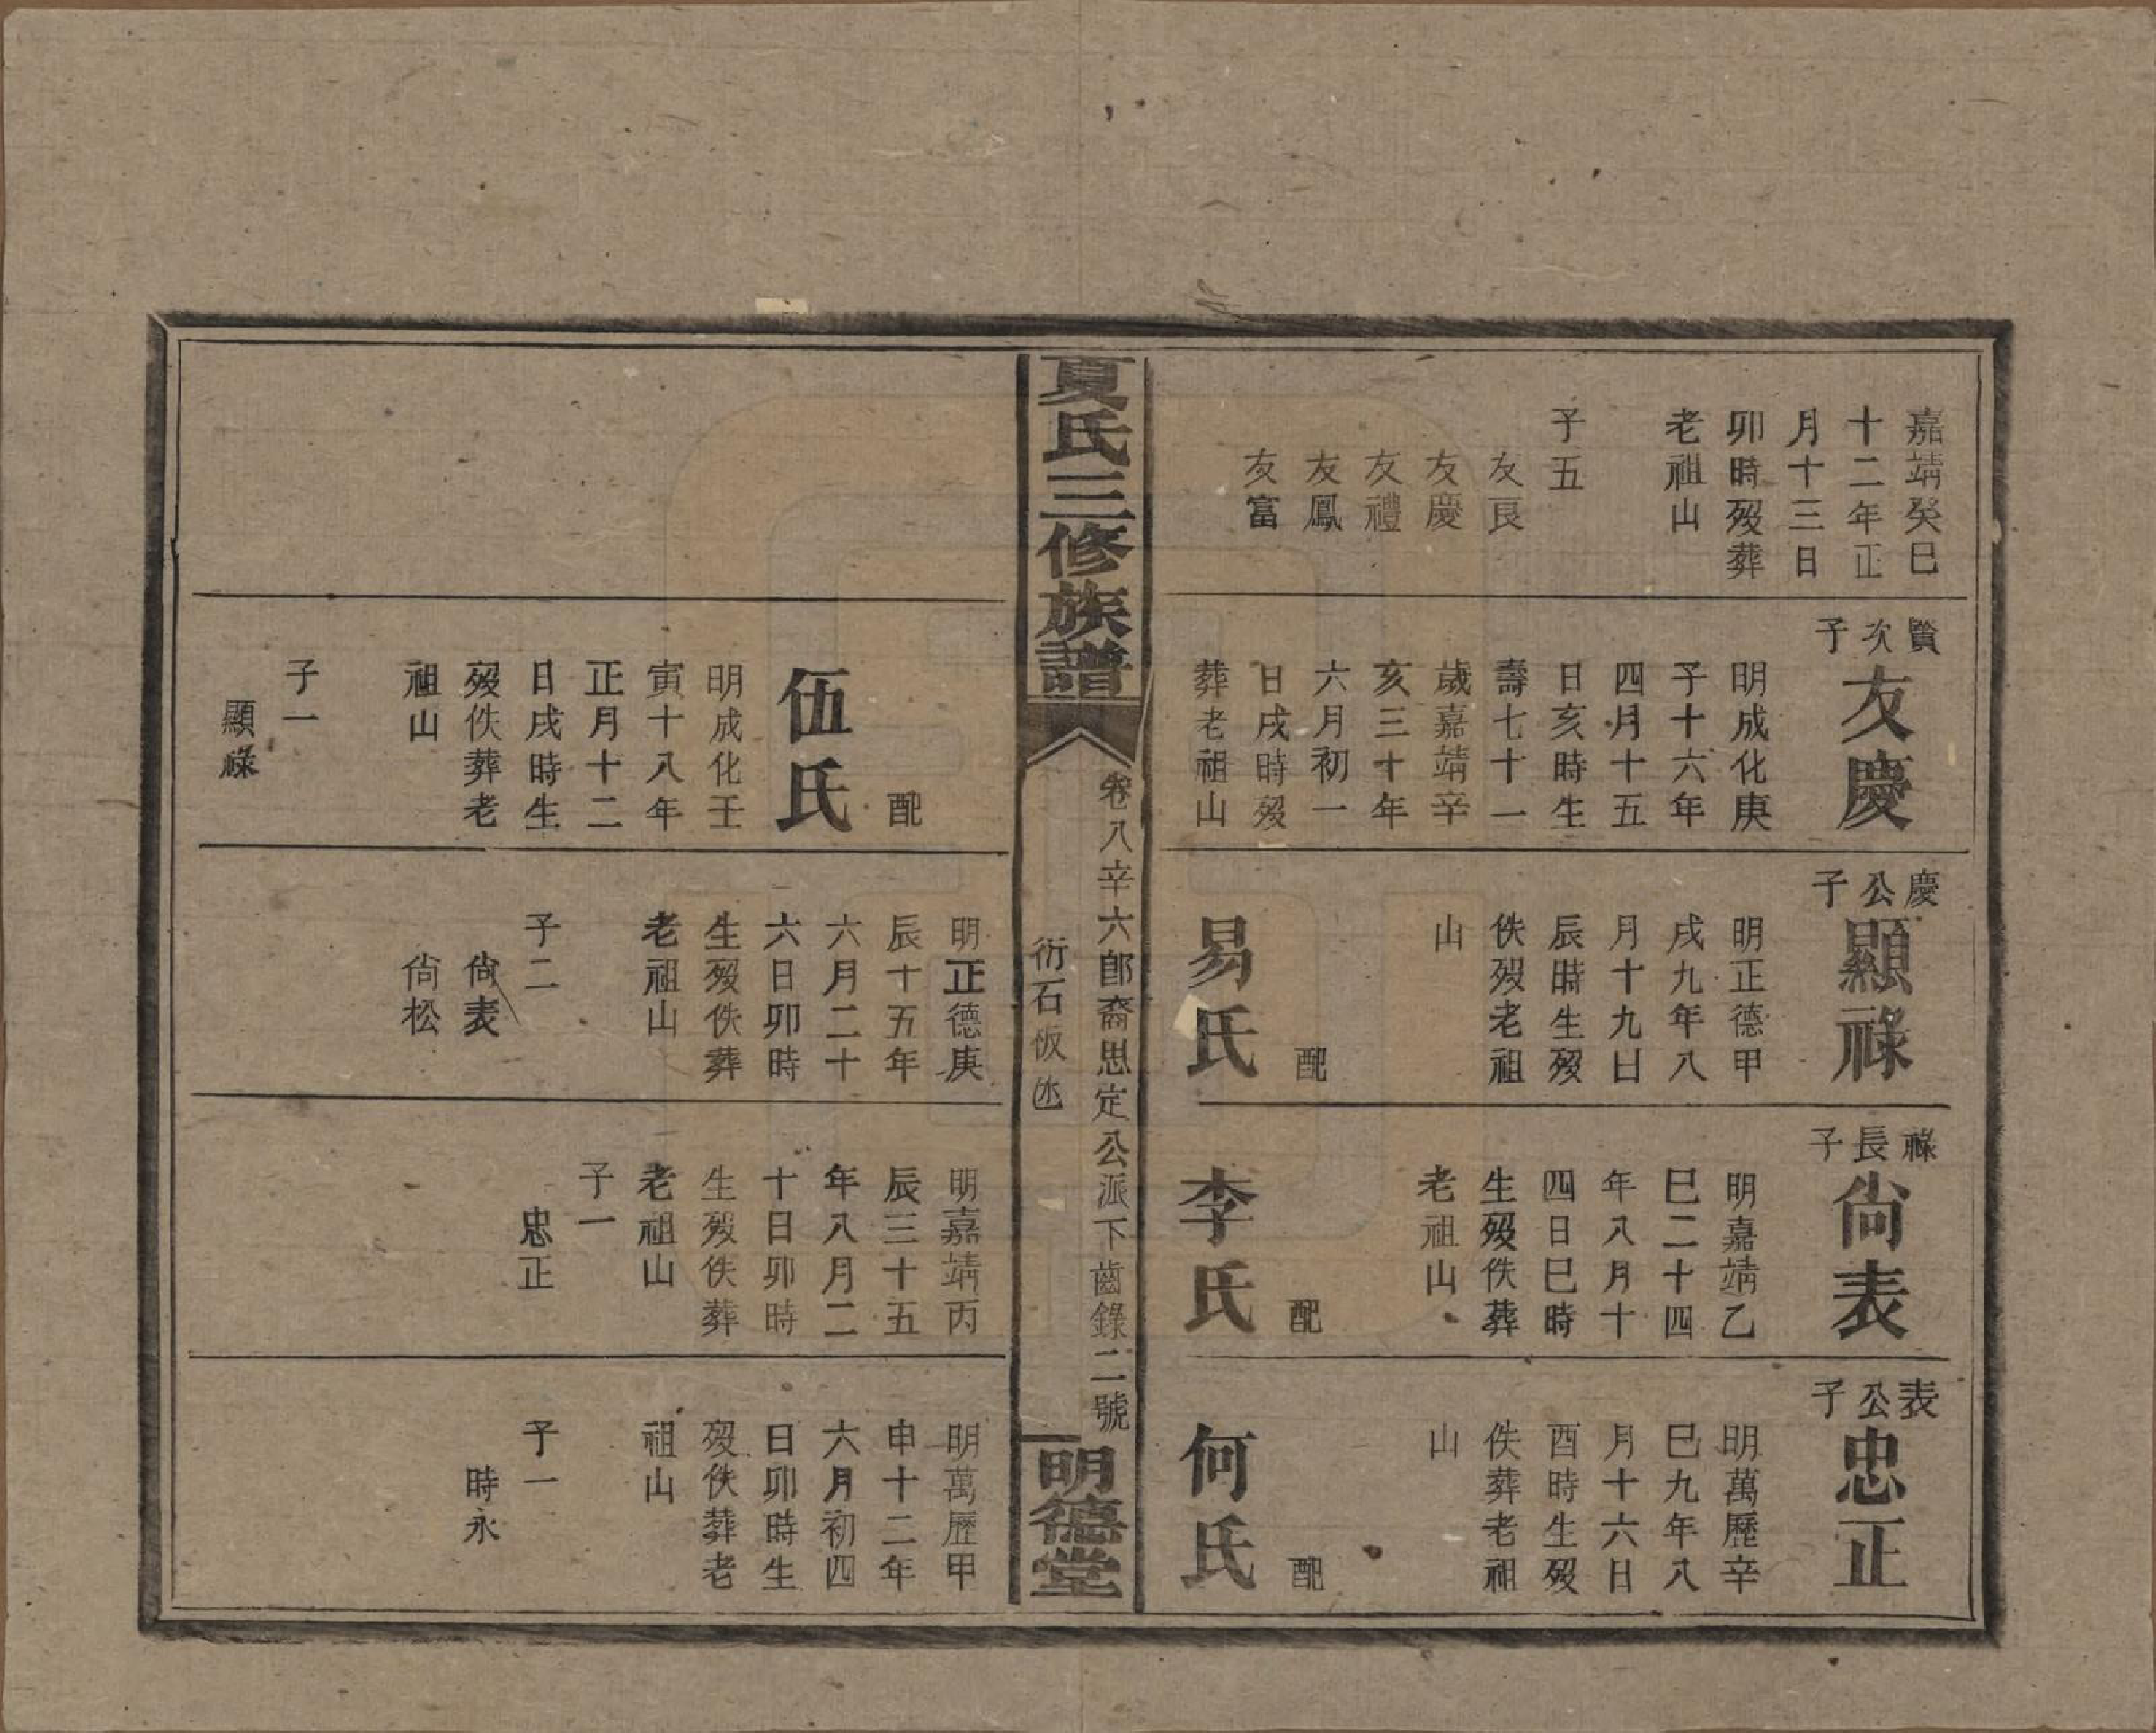 嘉靖癸巳
十二年正
月十三日
卯時歿葬
老祖山
子五
友良
友慶
友禮
友鳳
友富
賢次子
友慶
明成化庚
子十六年
四月十五
日亥時生
壽七十一
歲嘉靖辛
亥三十年
六月初一
日戌時歿
葬老祖山
慶公子
顯祿
明正德甲
戌九年八
月十九日
辰時生歿
佚歿老祖
山
配
易氏
祿長子
尙表
明嘉靖乙
巳二十四
年八月十
四日巳時
生歿佚葬
老祖山
配
李氏
表公子
忠正
明萬歷辛
巳九年八
月十六日
酉時生歿
佚葬老祖
山
配
何氏
夏氏三修族譜
卷八辛六郎裔思定公派下齒錄二號
衍石仮
明德堂
配
伍氏
明成化壬
寅十八年
正月十二
日戌時生
歿佚葬老
祖山
子一
顯祿
明正德庚
辰十五年
六月二十
六日卯時
生歿佚葬
老祖山
子二
尙表
尙松
明嘉靖丙
辰三十五
年八月二
十日卯時
生歿佚葬
老祖山
子一
忠正
明萬歷甲
申十二年
六月初四
日卯時生
歿佚葬老
祖山
子一
時永